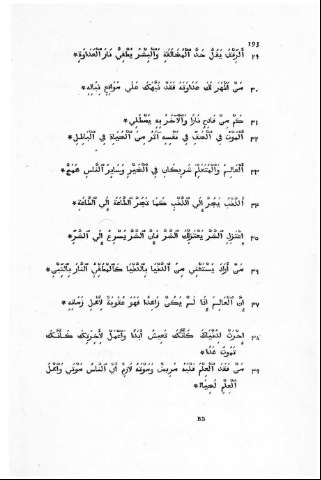 193
٢٩ اَلرِّفْقُ يَفُلُّ حَدَّ ٱلْمُخَالَفَةِ وَٱلْبِشْرُ يُطْفِي نَارَ ٱلْعَدَاوَةِ*
٣٠ مَنْ أَظْهَرَ لَكَ عَدَاوَتَهُ فَقَدْ نَبَّهَكَ عَلَى مَوَاقِعِ نِبَالِهِ*
٣١ كَمْ مِنْ قَادِحٍ نَارًا وَٱلْآخَرُ بِهِ يَصْطَلِي*
٣٢ اَلْمَوْتُ فِي ٱلْحَقِّ فِي نَفْسِهِ مِنَ ٱلْحَيَاةِ فِي ٱلْبَاطِلِ*
٣٣ اَلْعَالِمُ وَٱلْمُتَعَلِّمُ شَرِيكَانِ فِي ٱلْخَيْرِ وَسَايِرُ ٱلنَّاسِ هَمَجٌ*
٣٤ اَلذَّنْبُ يَجُرُّ إِلَى ٱلذَّنْبِ كَمَا تَجُرُّ ٱلطَّاعَةُ إِلَى ٱلطَّاعَةِ*
٣٥ اِعْتَزِلِ ٱلشَّرَّ يَعْتَزِلْكَ ٱلشَّرُّ فَإِنَّ ٱلشَّرَّ يُسْرِعُ إِلَى ٱلشَّرِّ*
٣٦ مَنْ أَرَادَ يَسْتَغْنِي مِنَ ٱلدُّنْيَا بِٱلدُّنْيَا كَٱلْمُطْفِي ٱلنَّارَ بِٱلتِّبْنِ*
٣٧ إِنَّ ٱلْعَالِمَ إِذَا لَمْ يَكُنْ زَاهِدًا فَهُوَ عُقُوبَةٌ لِأَهْلِ زَمَانِهِ*
٣٨ اِحْرُثْ لِدُنْيَاكَ كَأَنَّكَ تَعِيشُ أَبَدًا وَٱعْمَلْ لِآخِرَتِكَ كَأَنَّكَ
تَمُوتُ غَدًا*
٣٩ مَنْ فَقَدَ ٱلْعِلْمَ فَقَلْبُهُ مَرِيضٌ وَمَوْتُهُ لَازِمٌ أَنَّ ٱلنَّاسَ مَوْتَى وَأَهْلُ
ٱلْعِلْمِ أَحْيَاءٌ*
B5